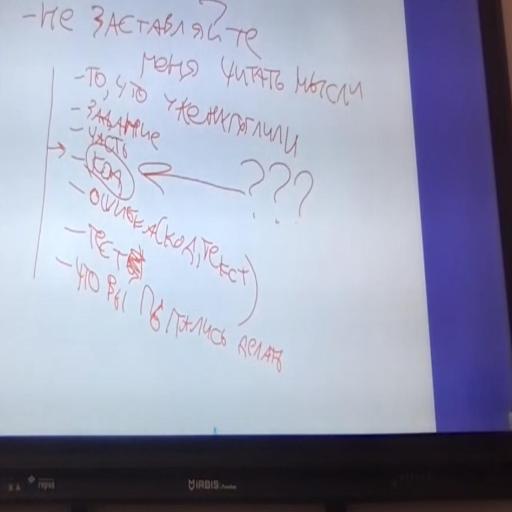 -НЕ ЗАСТАВЛЯЙТЕ
МЕНЯ ЧИТАТЬ МЫСЛИ
-ТО, ЧТО УЖЕ НАГУГЛИЛИ
-ЗАДАНИЕ
-ЧАСТЬ
-КОД ???
-ОШИБКА(КОД, ТЕКСТ)
-ТЕСТ
-ЧТО ВЫ ПЫТАЛИСЬ ДЕЛАТЬ
IRBIS